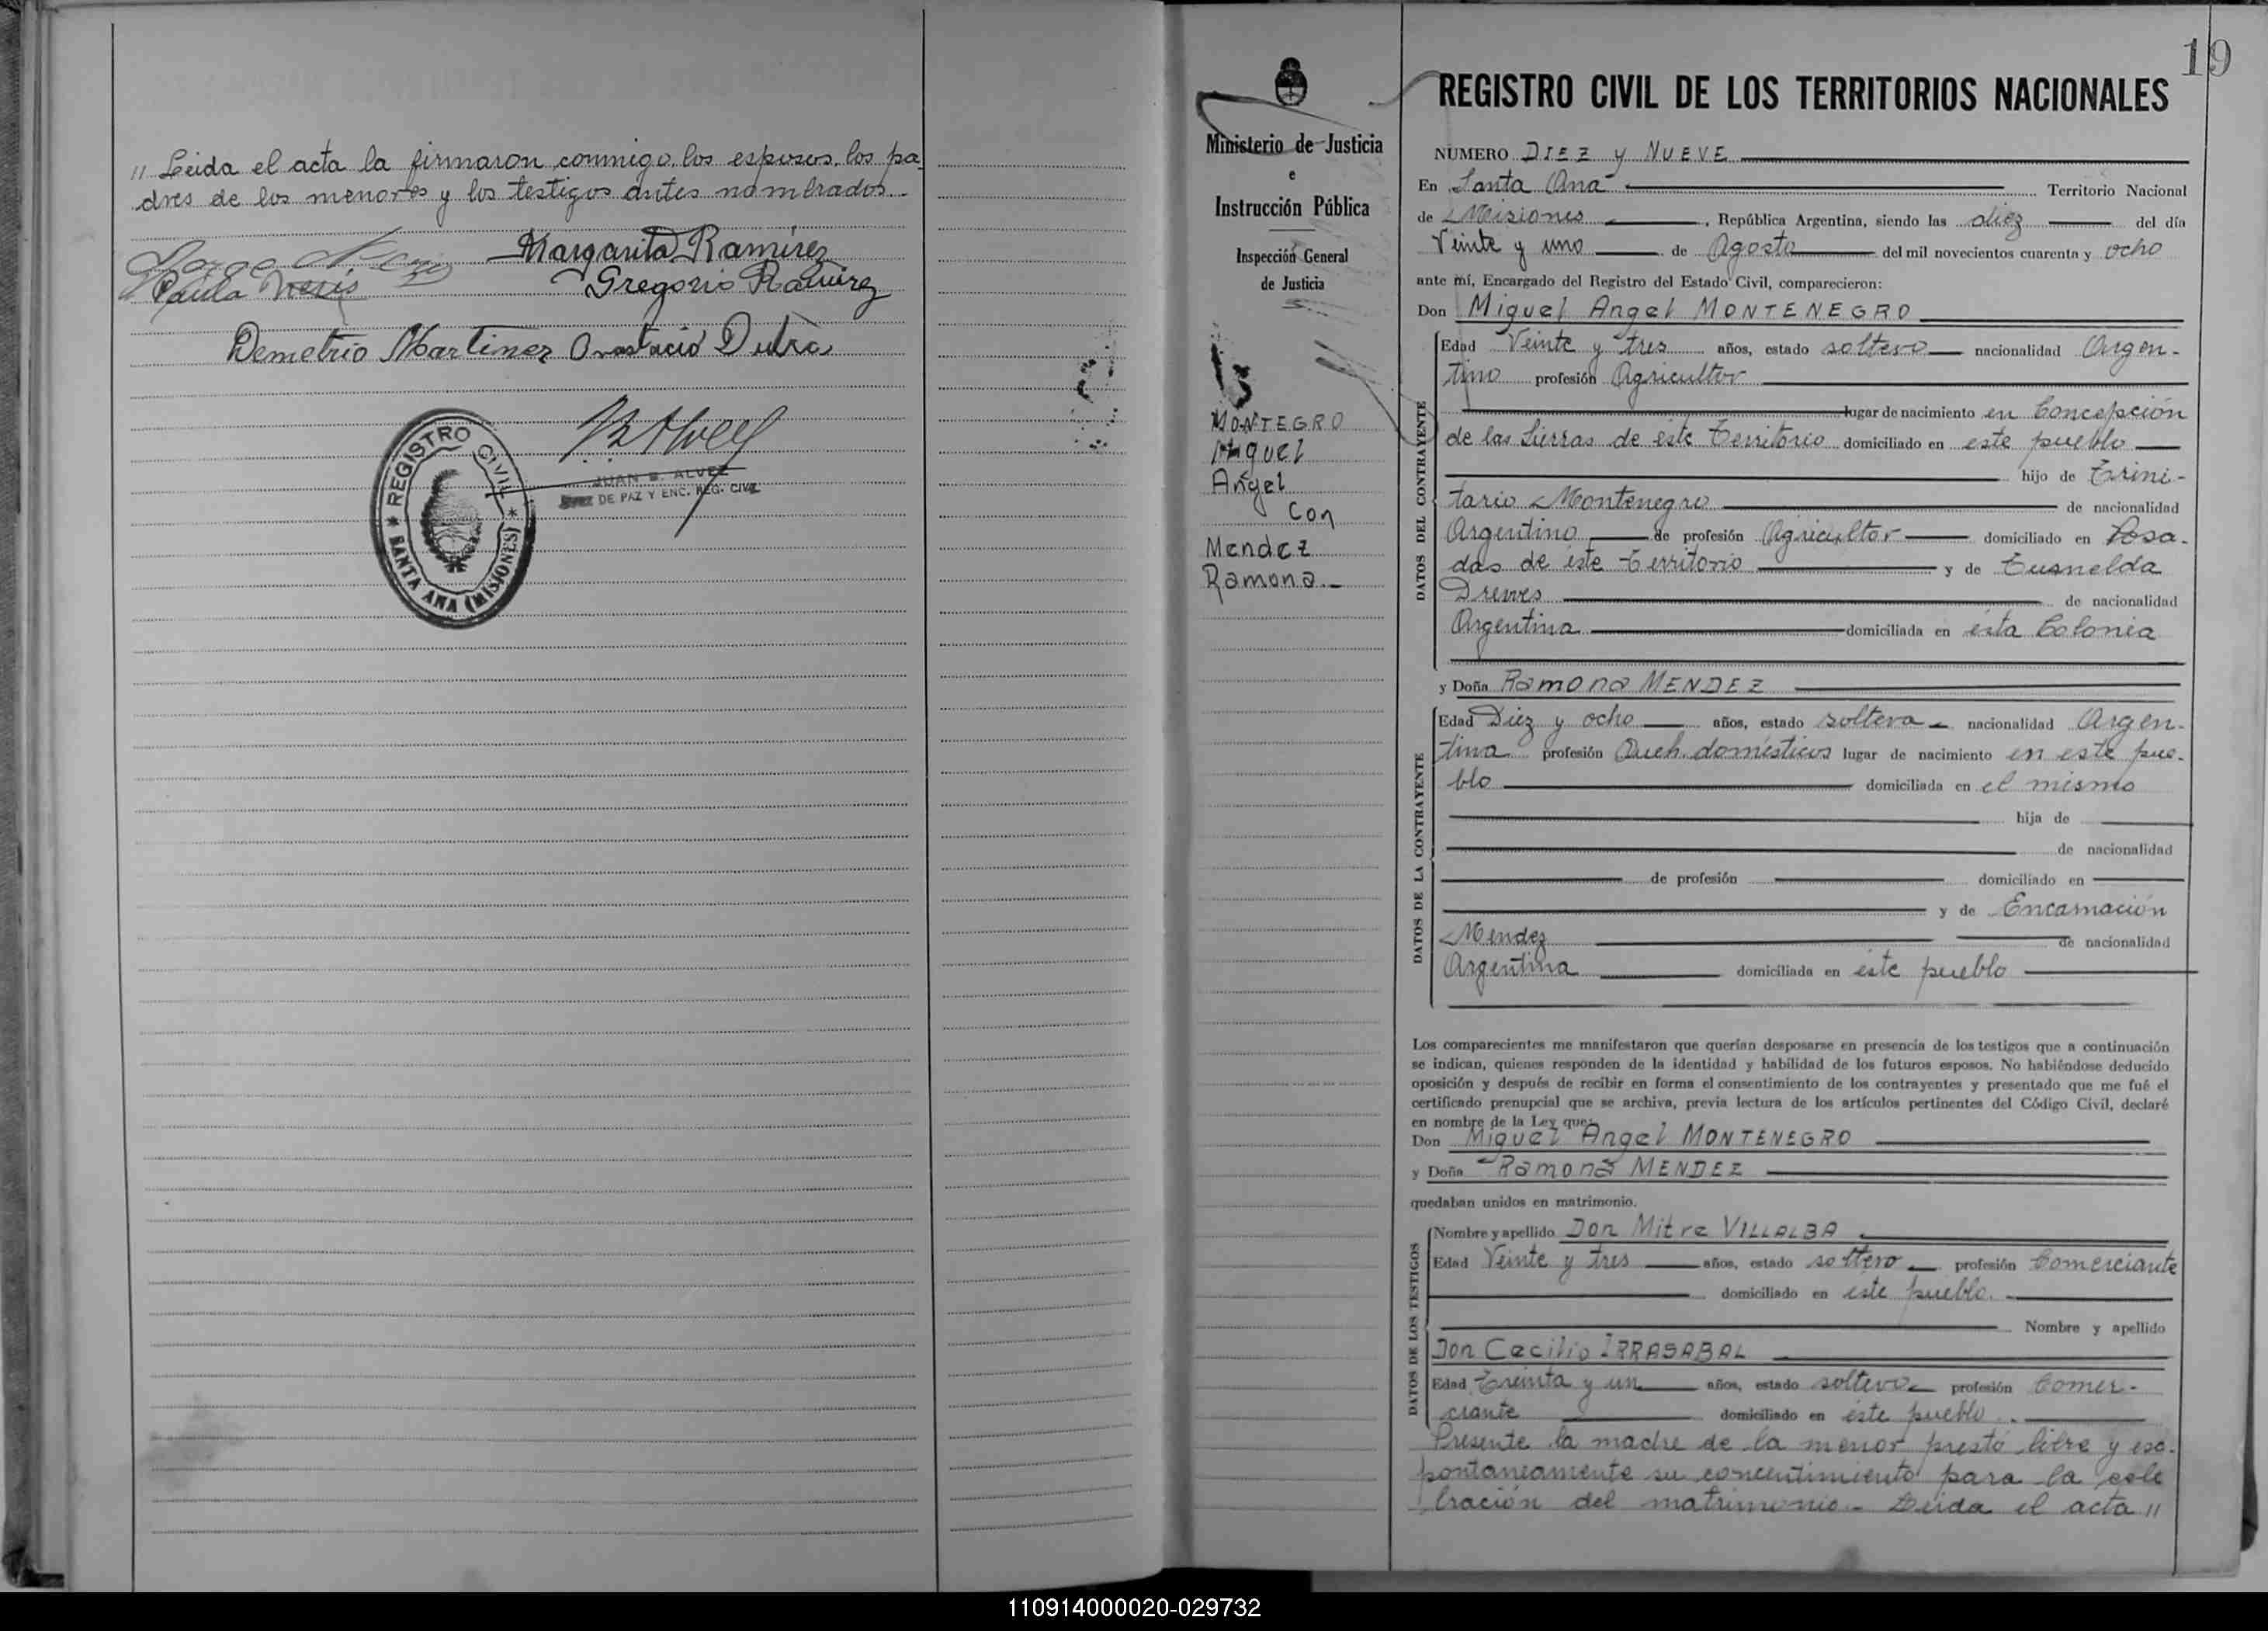 " Leida el acta la firmaron conmigo, los esposos, los pa
dres de los menores y los testigos antes nombrados.-
Margarita Ramirez
Paula Neris
Gregorio Ramirez
Demetrio Martinez Anastacio Dutra
REGISTRO CIVIL
SANTA ANA (MISIONES)
JUAN B. ALVEZ
JUEZ DE PAZ Y ENC. REG. CIVIL
Ministerio de Justicia
e
Instrucción Pública
Inspección General
de Justicia
MONTEGRO
Miguel
Angel
con
Mendez
Ramona.-
19
REGISTRO CIVIL DE LOS TERRITORIOS NACIONALES
NÚMERO DIEZ y NUEVE
En Santa Ana Territorio Nacional
de Misiones, República Argentina, siendo las diez del día
Veinte y uno de Agosto del mil novecientos cuarenta y ocho
ante mí, Encargado del Registro del Estado Civil, comparecieron:
Don Miguel Angel MONTENEGRO
DATOS DEL CONTRAYENTE
Edad Veinte y tres años, estado soltero nacionalidad Argen-
tino profesión Agricultor
lugar de nacimiento en Concepción
de las Sierras de éste Territorio domiciliado en este pueblo
hijo de Trini-
tario Montenegro de nacionalidad
Argentino de profesión Agricultor domiciliado en Posa-
das de éste Territorio y de Tusnelda
Drewes de nacionalidad
Argentina domiciliada en ésta Colonia
y Doña Ramona MENDEZ
DATOS DE LA CONTRAYENTE
Edad Diez y ocho años, estado soltera nacionalidad Argen-
tina profesión Queh. domésticos lugar de nacimiento en este pue-
blo domiciliada en el mismo
hija de
de nacionalidad
de profesión domiciliado en
y de Encarnación
Mendez de nacionalidad
Argentina domiciliada en éste pueblo
Los comparecientes me manifestaron que querían desposarse en presencia de los testigos que a continuación
se indican, quienes responden de la identidad y habilidad de los futuros esposos. No habiéndose deducido
oposición y después de recibir en forma el consentimiento de los contrayentes y presentado que me fué el
certificado prenupcial que se archiva, previa lectura de los artículos pertinentes del Código Civil, declaré
en nombre de la Ley que:
Don Miguel Angel MONTENEGRO
y Doña Ramona MENDEZ
quedaban unidos en matrimonio.
DATOS DE LOS TESTIGOS
Nombre y apellido Don Mitre VILLALBA
Edad Veinte y tres años, estado soltero profesión Comerciante
domiciliado en éste pueblo.
Nombre y apellido
Don Cecilio IRRASABAL
Edad Treinta y un años, estado soltero profesión Comer-
ciante domiciliado en éste pueblo.
Presente la madre de la menor prestó libre y es-
pontaneamente su concentimiento para la cele
bración del matrimonio.- Leida el acta "
110914000020-029732